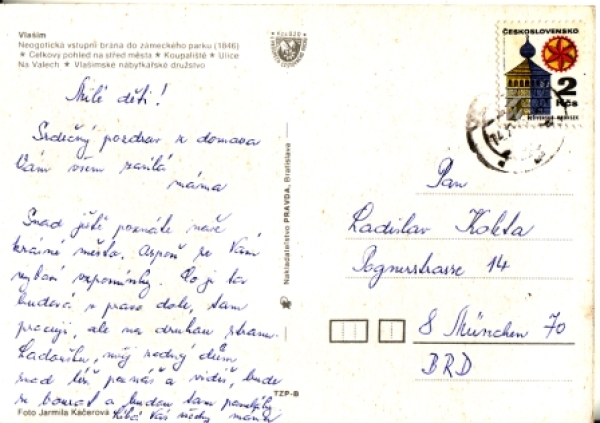 Vlašim
Neogotická vstupní brána do zámeckého parku (1846)
★ Celkový pohled na střed města ★ Koupaliště ★ Ulice
Na Valech ★ Vlašimské nábytkářské družstvo
Milé děti!
Srdečný pozdrav z domova
Vám všem zasílá
máma
Snad ještě poznáte naše
krásné město. Aspoň se Vám
vybaví vzpomínky. Co je ta
budova v pravo dole, tam
pracuji, ale na druhou stranu.
Laďoušku, můj rodný dům
snad též poznáš a vidíš, bude
se bourat a budou tam paneláky
Líbá Vás všechny máma
Foto Jarmila Kačerová
TZP-B
Nakladatelství PRAVDA, Bratislava
ČESKOSLOVENSKO
2
Kčs
Pan
Ladislav Koleta
Pognerstrasse 14
8 München 70
BRD